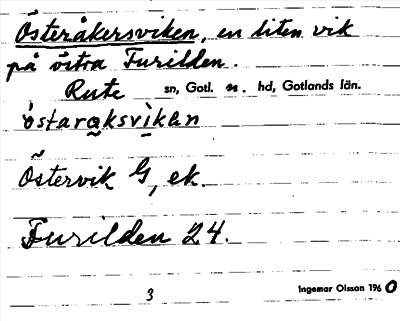 Österåkersviken, en liten vik
på östra Furilden.
Rute sn, Gotl. n. hd, Gotlands län.
Östervik G, ek.
Furilden 24.
3
Ingemar Olsson 1960